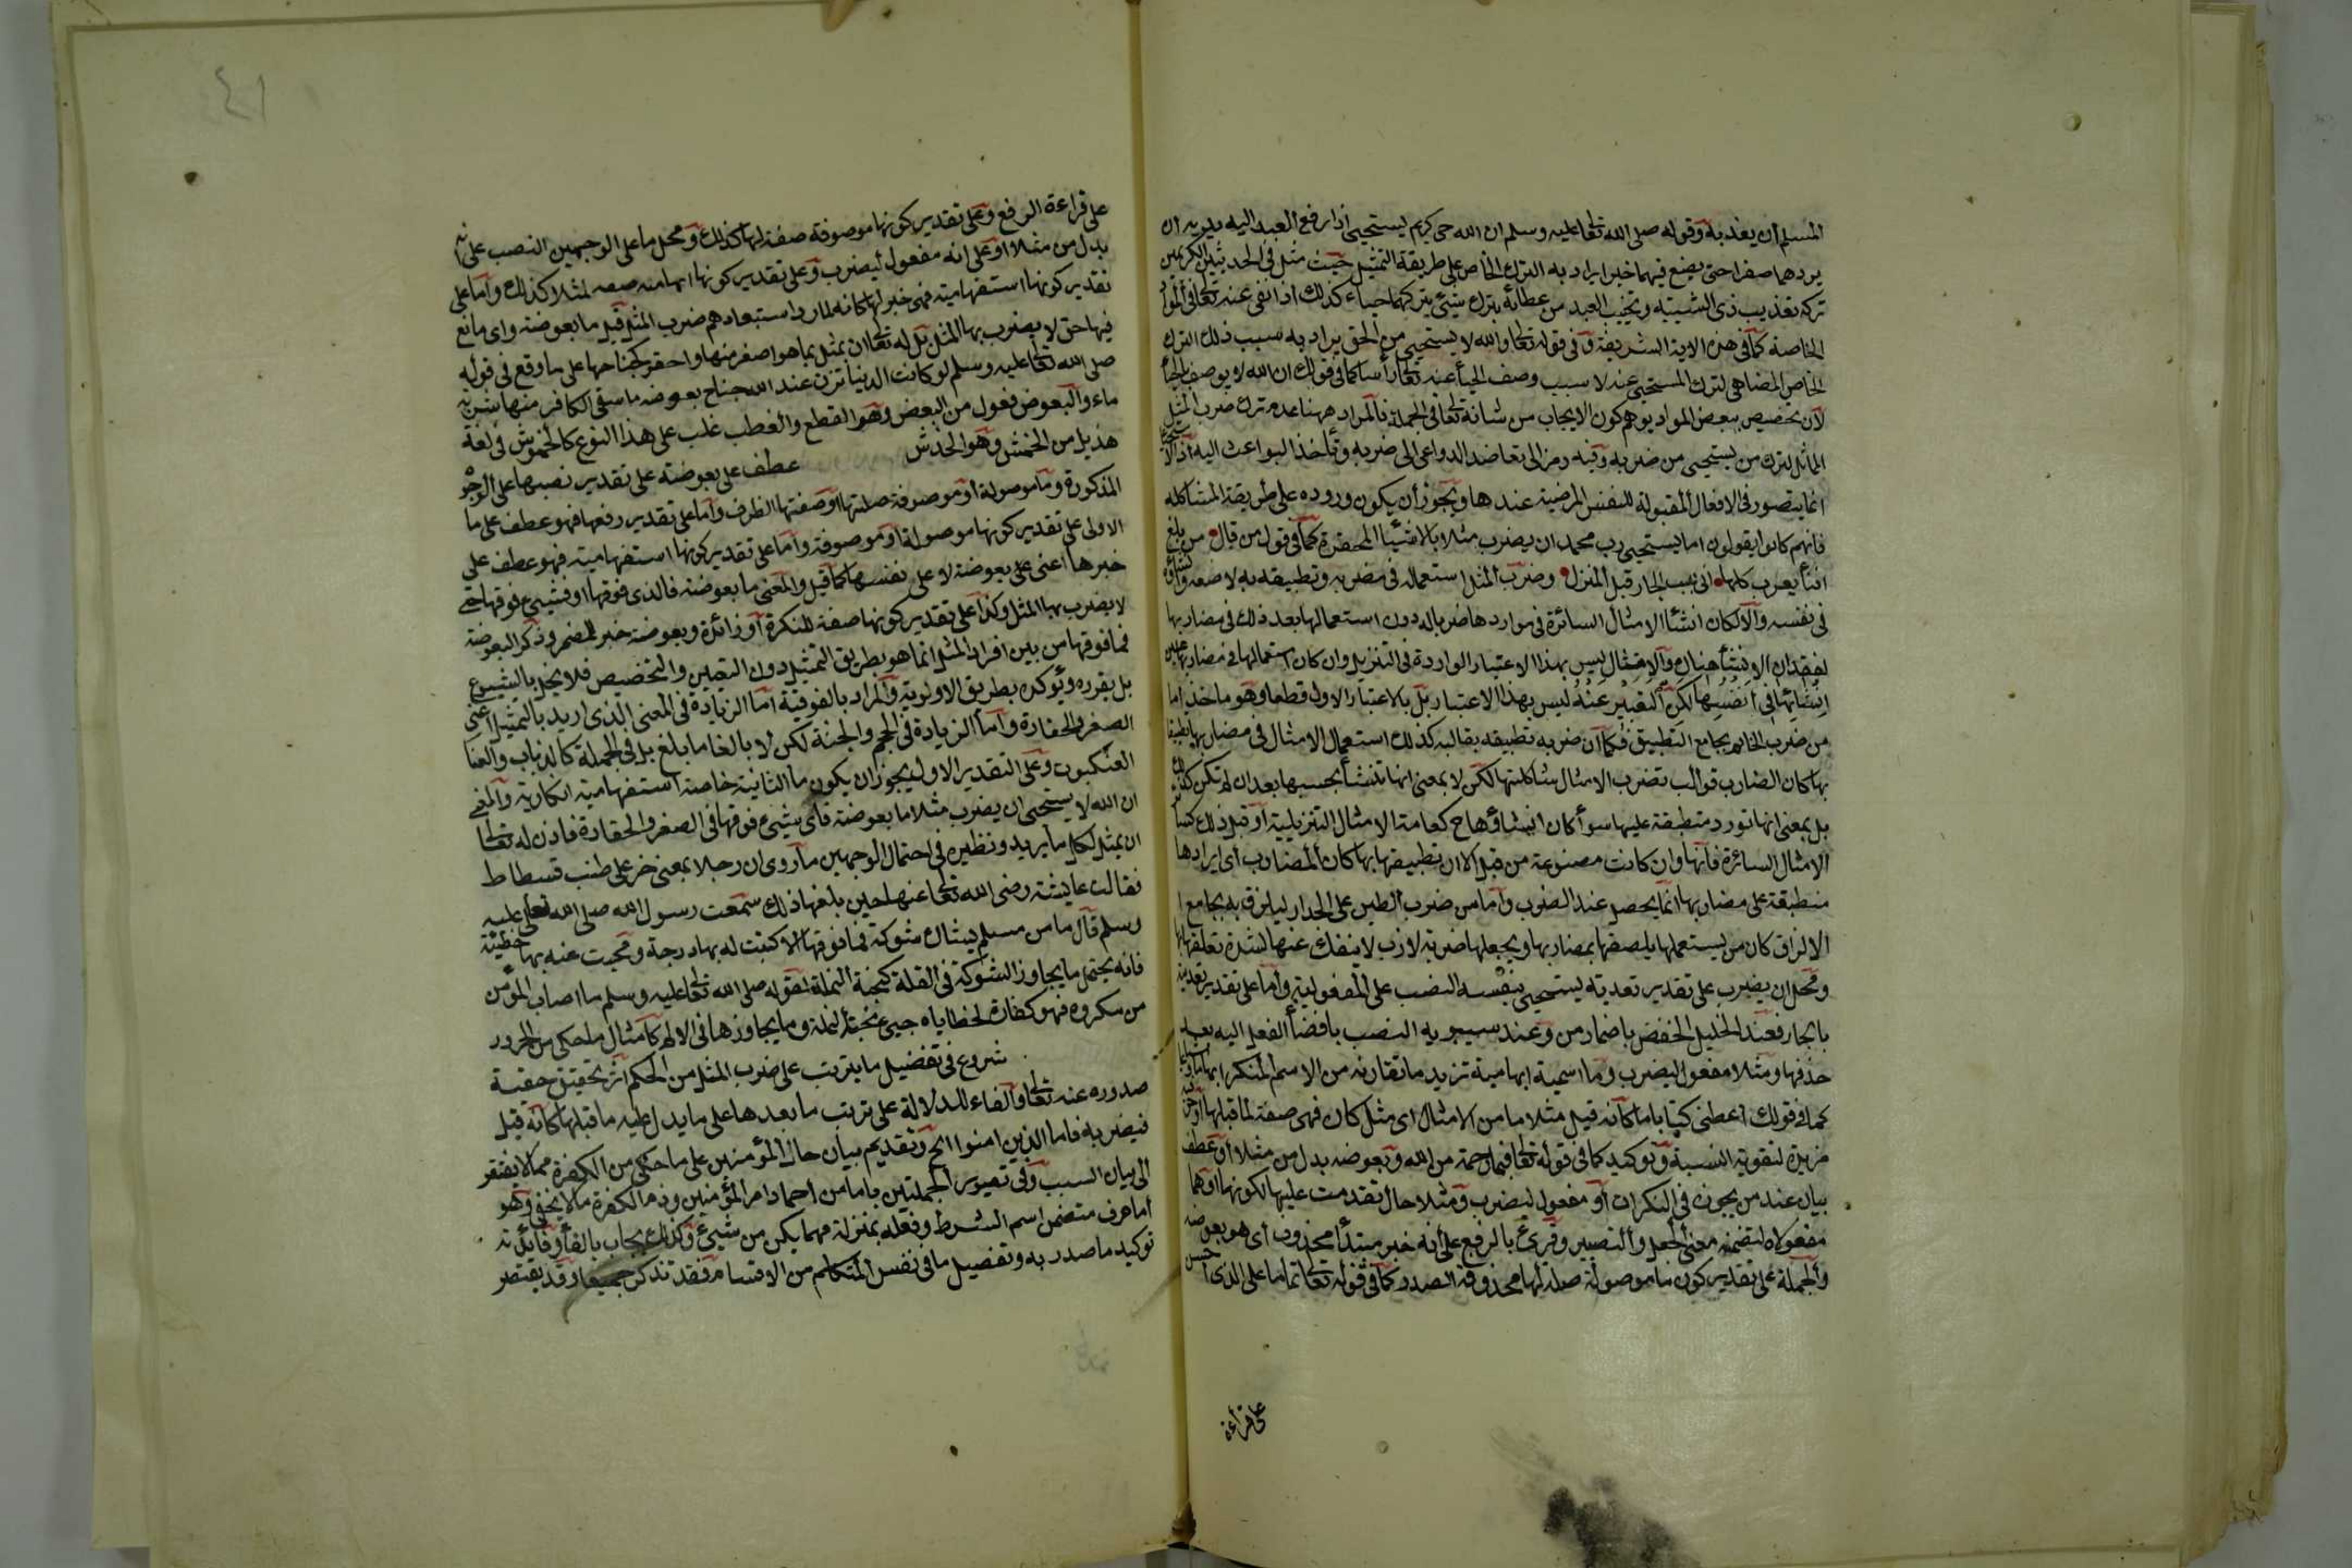 المسلم أن يعذبه وقوله صلى الله تعالى عليه وسلم ان الله حى كريم يستحيى اذا رفع العبد اليه يديه ان
يردهما صفرا حتى يضع فيهما خيرا يراد به الترك الخاص على طريقة التمثيل حيث مثل فى الحديثين الكريمين
تركه تعذيب ذى الشيبة وتخييب العبد من عطائه بترك من يتركهما حياء كذلك اذا نفى عنه تعالى فى المواد
الخاصة كما فى هذه الاية الشريفة وفى قوله تعالى والله لا يستحيى من الحق يراد به سبب ذلك الترك
الخاص المضاهى لترك المستحيى عنه لا سبب وصف الحيأ عنه تعالى رأسا كما فى قولك ان الله لا يوصف بالحيأ
لأن تخصيص ببعض المواد يوهم كون الايجاب من شانه تعالى فى الجملة فالمراد ههنا عدم ترك ضرب المثل
المماثل لترك من يستحيى من ضربه وفيه رمز الى تعاضد الدواعى الى ضربه وتأخذ البواعث اليه اذ الاستحياء
انما يتصور فى الافعال المقبولة للنفس المرضية عندها ويجوز أن يكون وروده على طريقة المشاكلة
فانهم كانوا يقولون اما يستحيى رب محمد ان يضرب مثلا بالاشيأ المحقرة كما فى قول من قال من مبلغ
افنأ يعرب كلها انى بنيت الجار قبل المنزل وضرب المثل استعماله فى مضربه وتطبيقه به لا صنعه وانشاؤه
فى نفسه والا لكان انشأ الامثال السائرة فى مواردها ضربا لها دون استعمالها بعد ذلك فى مضاربها
لفقدان الانشأ هناك والامثال ليس بهذا الاعتبار الواردة فى التنزيل وان كان استعمالها فى مضاربها عين
انشائها فى انفسها لكن التعبير عنه ليس بهذا الاعتبار بل بالاعتبار الاول قطعا وهو ماخذ اما
من ضرب الخاتم بجامع التطبيق فكما أن ضربه تطبيقه بقالبه كذلك استعمال الامثال فى مضاربها تطبيقا
بها كان المضارب قوالب تضرب الامثال شاكلتها لكن لا بمعنى انها تنشأ بحسبها بعد ان لم تكن كذلك
بل بمعنى انها تورد منطبقة عليها سوأ كان انشاؤها ح كعامة الامثال التنزيلية أو قبل ذلك كسائر
الامثال السائرة فانها وان كانت مصنوعة من قبل الا ان تطبيقها بها كان المضارب أى ايرادها
منطبقة على مضاربها انما يحصل عند الضرب واما من ضرب الطين على الجدار ليلزق به بجامع
الالزاق كان من يستعملها يلصقها بمضاربها ويجعلها ضربة لازب لا ينفك عنها لشدة تعلقها بها
ومحل ان يضرب على تقدير تعدية يستحيى بنفسه النصب على المفعولية واما على تقدير تعديته
بالجار فعند الخليل الخفض باضمار من وعند سيبويه النصب بافضأ الفعل اليه بعد
حذفها ومثلا مفعول ليضرب وما اسمية ابهامية تزيد ما تقارنه من الاسم المنكر ابهاما وشياعا
كما فى قولك اعطنى كتابا ما كانه قيل مثلا ما من الامثال اى مثل كان فهى صفة لما قبلها او حرفية
مزيدة لتقوية النسبة وتوكيد كما فى قوله تعالى فبما رحمة من الله وبعوضة بدل من مثلا أو عطف
بيان عند من يجوزه فى النكرات أو مفعول ليضرب ومثلا حال تقدمت عليها لكونها او هما
مفعولاه لتضمنه معنى الجعل والتصيير وقرئ بالرفع على أنه خبر مبتدأ محذوف أى هو بعوضة
والجملة على تقدير كون ما موصولة صلة لها محذوفة الصدر كما فى قوله تعالى تماما على الذى أحسن
على قراءة
٤١
على قراءة الرفع وعلى تقدير كونها موصوفة صفة لها كذلك ومحل ما على الوجهين النصب على انه
بدل من مثلا او على انه مفعول ليضرب وعلى تقدير كونها ابهامية صفة لمثلا كذلك واما على
تقدير كونها استفهامية فهى خبر لها كانه لما رد استبعادهم ضرب المثل قيل ما بعوضة واى مانع
فيها حتى لا يضرب بها المثل بل له تعالى ان يمثل بما هو اصغر منها واحقر كجناحها على ما وقع فى قوله
صلى الله تعالى عليه وسلم لو كانت الدنيا تزن عند الله جناح بعوضة ما سقى الكافر منها شربة
ماء والبعوض فعول من البعض وهو القطع والعضب غلب على هذا النوع كالخموش فى لغة
هذيل من الخمش وهو الخدش عطف على بعوضة على تقدير نصبها على الوجوه
المذكورة وما موصولة أو موصوفة صلتها او صفتها الظرف واما على تقدير رفعها فهو عطف على ما
الاولى على تقدير كونها موصولة او موصوفة واما على تقدير كونها استفهامية فهو عطف على
خبرها اعنى على بعوضة لا على نفسها كما قيل والمعنى ما بعوضة فالذى فوقها او فشيئ فوقها حتى
لا يضرب بها المثل وكذا على تقدير كونها صفة للنكرة أو زائدة وبعوضة خبر للمضمر وذكر البعوضة
فما فوقها من بين افراد المثل انما هو بطريق التمثيل دون التعيين والتخصيص فلا يخل بالشيوع
بل يقرره ويؤكده بطريق الاولوية والمراد بالفوقية اما الزيادة فى المعنى الذى اريد بالتمثيل اعنى
الصغر والحقارة واما الزيادة فى الحجم والجثة لكن لا بالغا ما بلغ بل فى الجملة كالذباب والعنا
العنكبوت وعلى التقدير الاول يجوز ان يكون ما الثانية خاصة استفهامية انكارية والمعنى
ان الله لا يستحيى ان يضرب مثلا ما بعوضة فاى شيئ فوقها فى الصغر والحقارة فاذن له تعالى
ان يمثل لكل ما يريد ونظيره فى احتمال الوجهين ما روى ان رجلا بمعنى خر على طنب فسطاط
فقالت عايشة رضى الله تعالى عنها حين بلغها ذلك سمعت رسول الله صلى الله تعالى عليه
وسلم قال ما من مسلم يشاك شوكة فما فوقها الا كتبت له بها درجة ومحيت عنه بها خطيئة
فانه يحتمل ما يجاوز الشوكة فى القلة كنخبة النملة لقوله صلى الله تعالى عليه وسلم ما اصاب المؤمن
من مكروه فهو كفارة لخطاياه حتى نخبة النملة وما يجاوزها فى الالم كامثال ما حكى من الحرور
شروع فى تفصيل ما يترتب على ضرب المثل من الحكم اثر تحقيق حقية
صدوره عنه تعالى والفاء للدلالة على ترتب ما بعدها على ما يدل عليه ما قبلها كانه قيل
فيضربه فاما الذين امنوا الخ وتقديم بيان حال المؤمنين على ما حكى من الكفرة مما لا يفتقر
الى بيان السبب وفى تصوير الجملتين باما من احماد امر المؤمنين وذم الكفرة ما لا يخفى وهو
أما حرف متضمن اسم الشرط وفعله بمنزلة مهما يكن من شيئ وكذلك يجاب بالفأ وفائدته
توكيد ما صدر به وتفصيل ما فى نفس المتكلم من الاقسام فقد تذكر جميعا وقد يقتصر